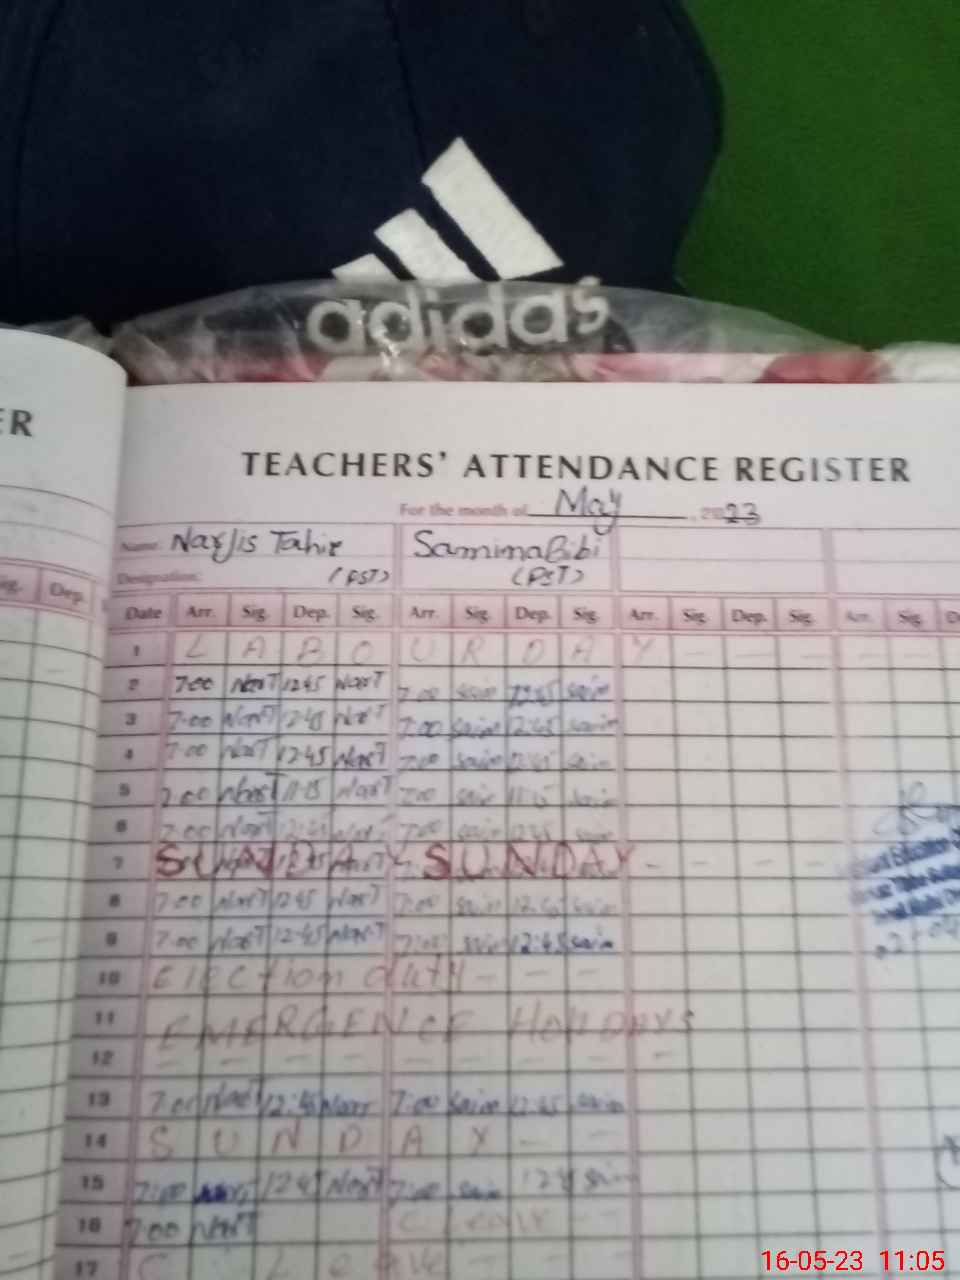 adidas
ER
TEACHERS' ATTENDANCE REGISTER
For the month of May, 2023
Name: Narjis Tahir Samina Bibi
Designation: (PST) (PST)
Sig. Dep. Date Arr. Sig. Dep. Sig. Arr. Sig. Dep. Sig. Arr. Sig. Dep. Sig. Arr. Sig.
1 L A B O U R D A Y
2 7:00 NarT 12:45 NarT 7:00 saim 12:45 saim
3 7:00 NarT 12:45 NarT 7:00 saim 12:45 saim
4 7:00 NarT 12:45 NarT 7:00 saim 12:45 saim
5 7:00 NarT 11:15 NarT 7:00 saim 11:15 saim
6 7:00 NarT 12:45 NarT 7:00 saim 12:45 saim
7 SUNDAY SUNDAY
8 7:00 NarT 12:45 NarT 7:00 saim 12:45 saim
9 7:00 NarT 12:45 NarT 7:00 saim 12:45 saim
10 Election duty
11 EMERGENCE HoliDAYS
12
13 7:00 NarT 12:45 NarT 7:00 saim 12:45 saim
14 S U N D A Y
15 7:00 NarT 12:45 NarT 7:00 saim 12:45 saim
16 7:00 NarT C leave
17 C Leave
16-05-23 11:05